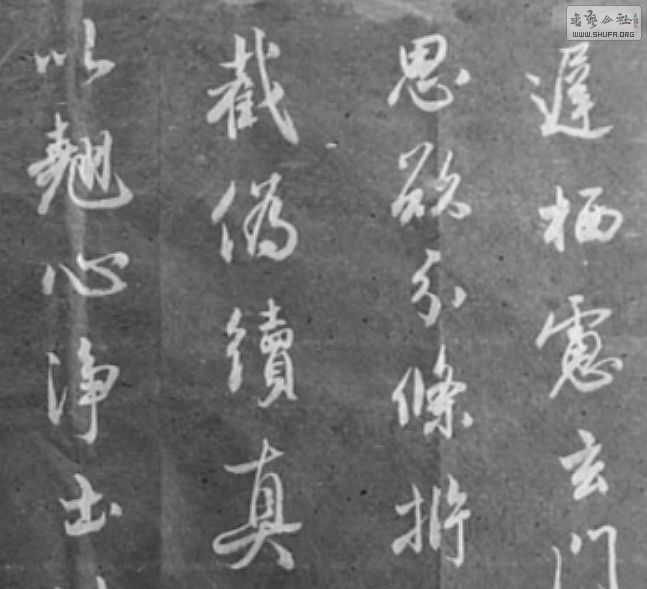 遲栖慮玄門
思欲分條析
截偽續真
以翹心淨土
書藝公社
WWW.SHUFA.ORG